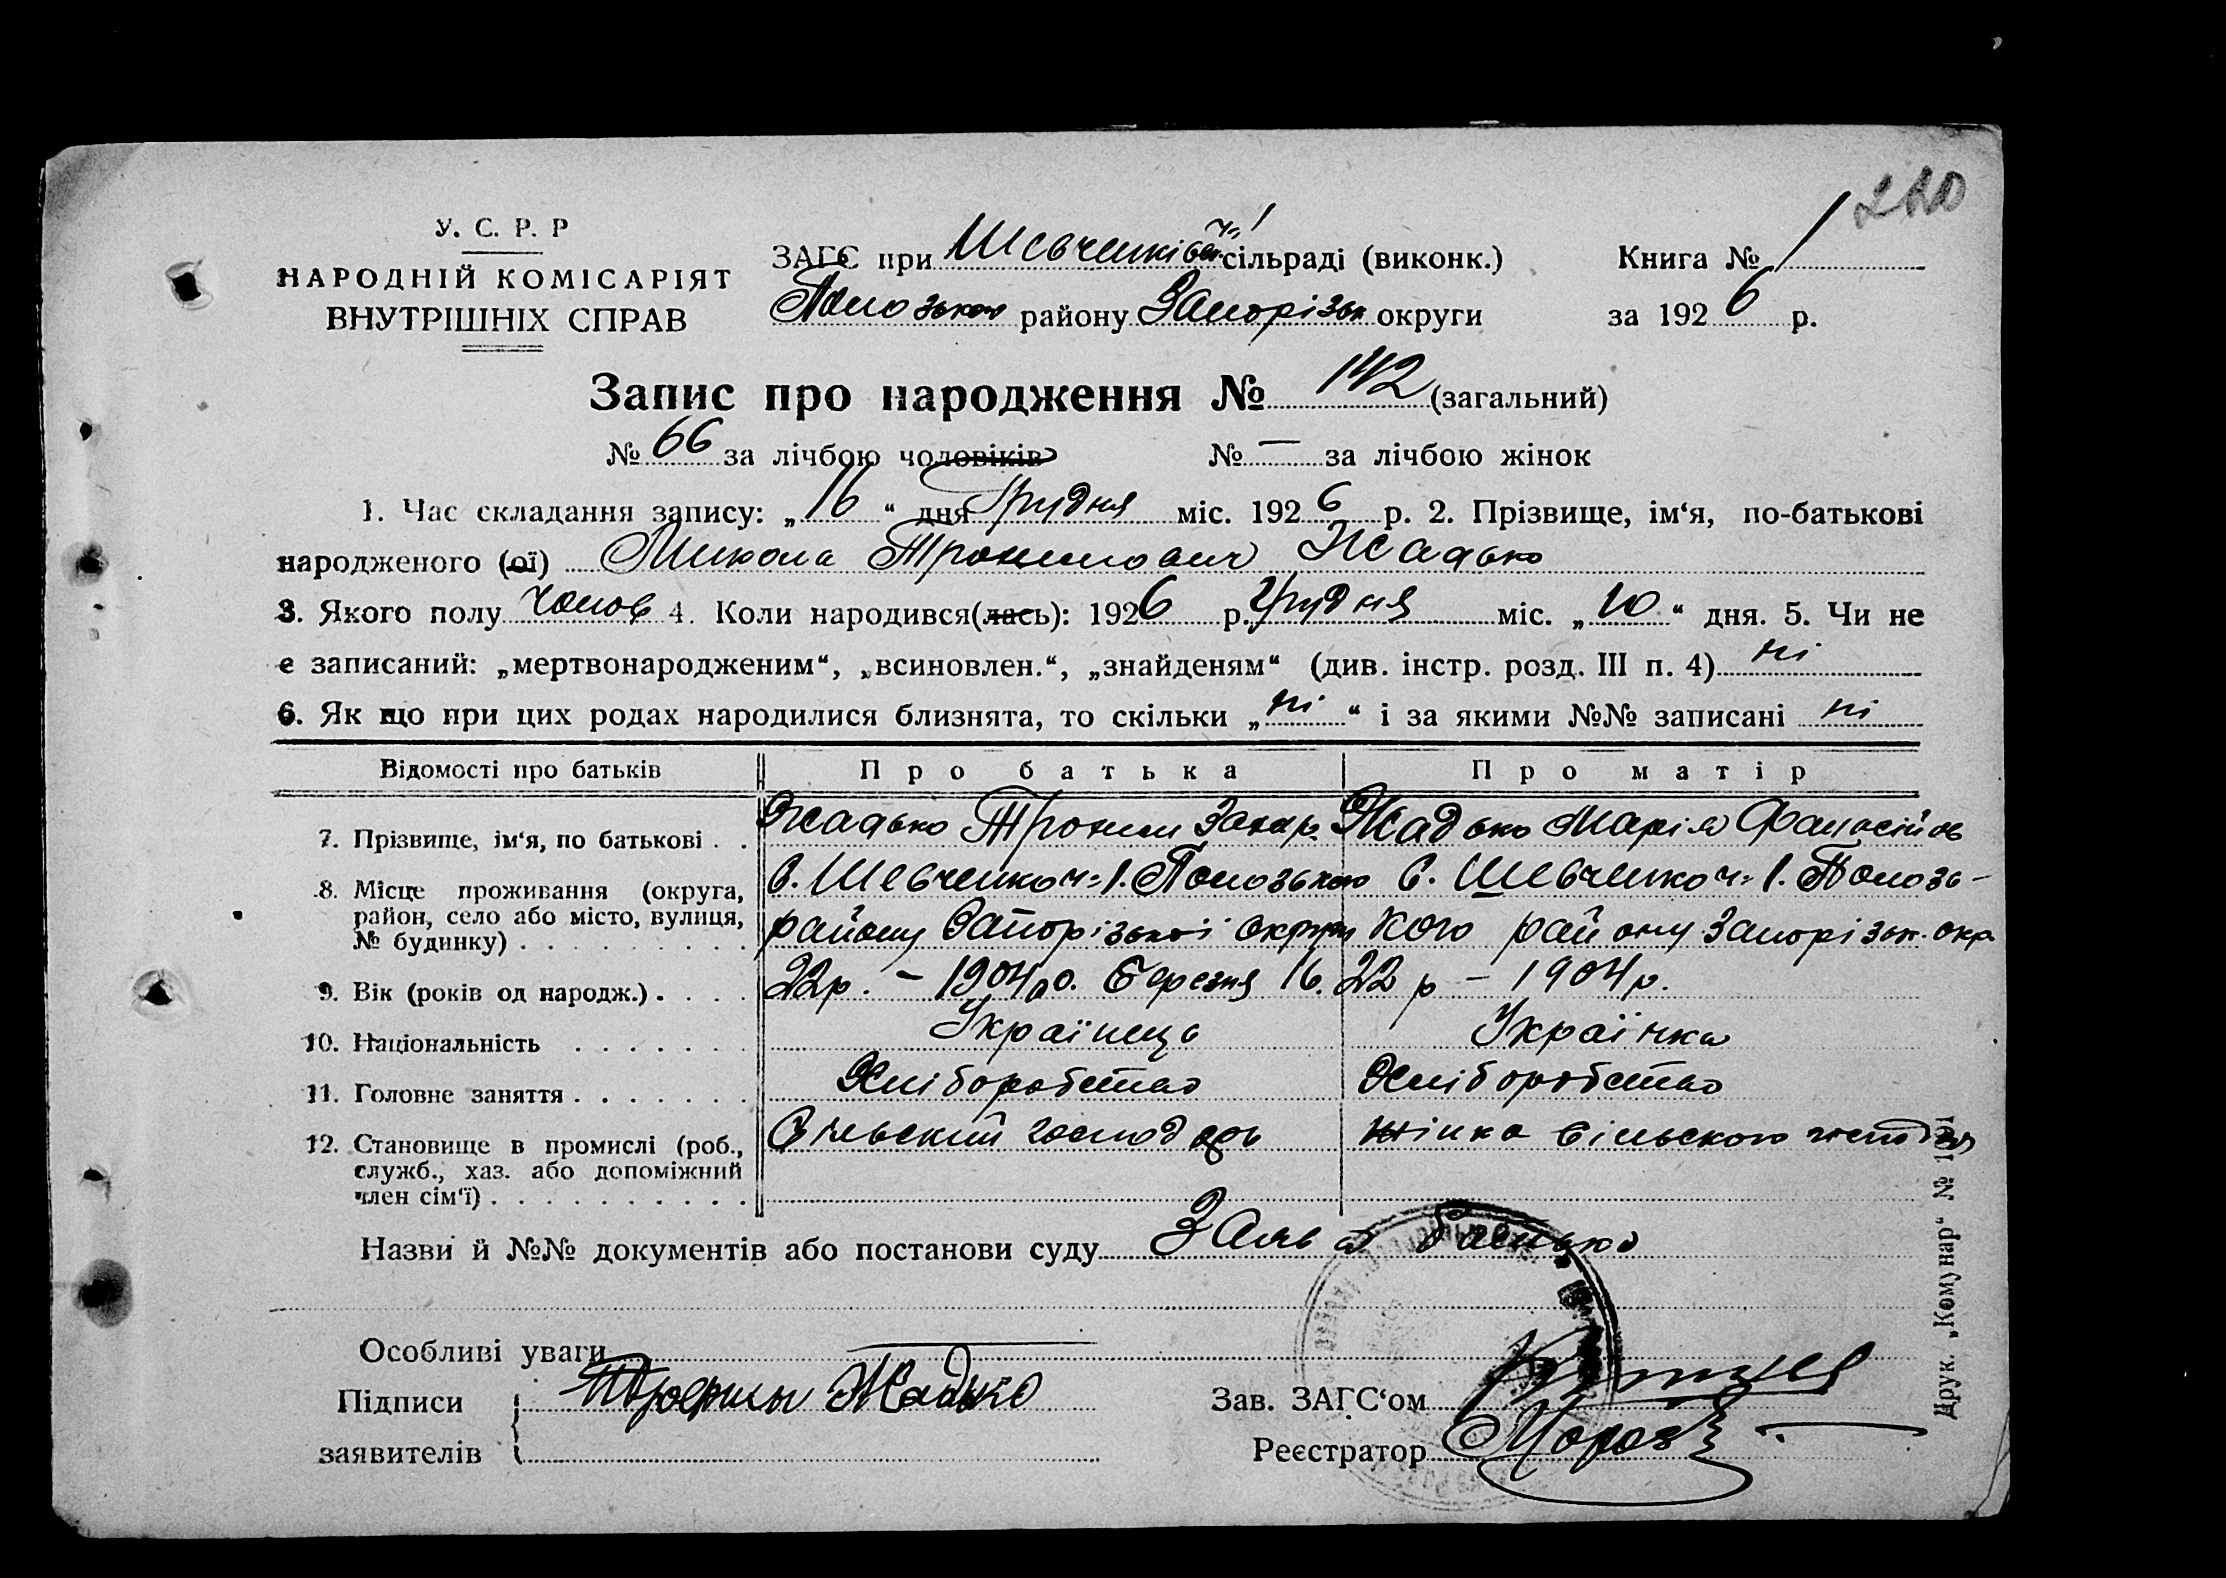 220
У. С. Р. Р
НАРОДНІЙ КОМІСАРІЯТ
ВНУТРІШНІХ СПРАВ
ЗАГС при Шевченківск. ч. 1 сільраді (виконк.)
Пологзького району Запорізьк округи
Книга № 1
за 1926 р.
Запис про народження № 142 (загальний)
№ 66 за лічбою чоловіків № — за лічбою жінок
1. Час складання запису: „16“ дня Грудня міс. 1926 р. 2. Прізвище, ім‘я, по-батькові
народженого (ої) Микола Трохимович Жадько
3. Якого полу чолов 4. Коли народився(лась): 1926 р. Грудня міс. „10“ дня. 5. Чи не
є записаний: „мертвонародженим“, „всиновлен.“, „знайденям“ (див. інстр. розд. III п. 4) ні
6. Як що при цих родах народилися близнята, то скільки „ні“ і за якими №№ записані ні
Відомості про батьків Про батька Про матір
7. Прізвище, ім‘я, по батькові . . Жадько Трохим Захар. Жадько Марія
8. Місце проживання (округа, район, село або місто, вулиця, № будинку) . . . . . . . . .
С. Шевченко ч=1. Пологзького
району Запорізької округи
С. Шевченко ч=1. Пологзь-
кого району Запорізьк. окр
9. Вік (років од народж.) . . . . 22р. – 1904 р. Березня 16. 22 р – 1904 р.
10. Національність . . . . . . . Українець Українка
11. Головне заняття . . . . . . . Хліборобство Хліборобство
12. Становище в промислі (роб., служб., хаз. або допоміжний член сім‘ї) . . . . . . . . . .
Сільский господарь
жінка сільского господаря
Назви й №№ документів або постанови суду Заява батька
Особливі уваги —
Підписи
заявителів
Трофим Жадько
Зав. ЗАГС‘ом
Реєстратор Мороз
Друк. „Комунар“ №